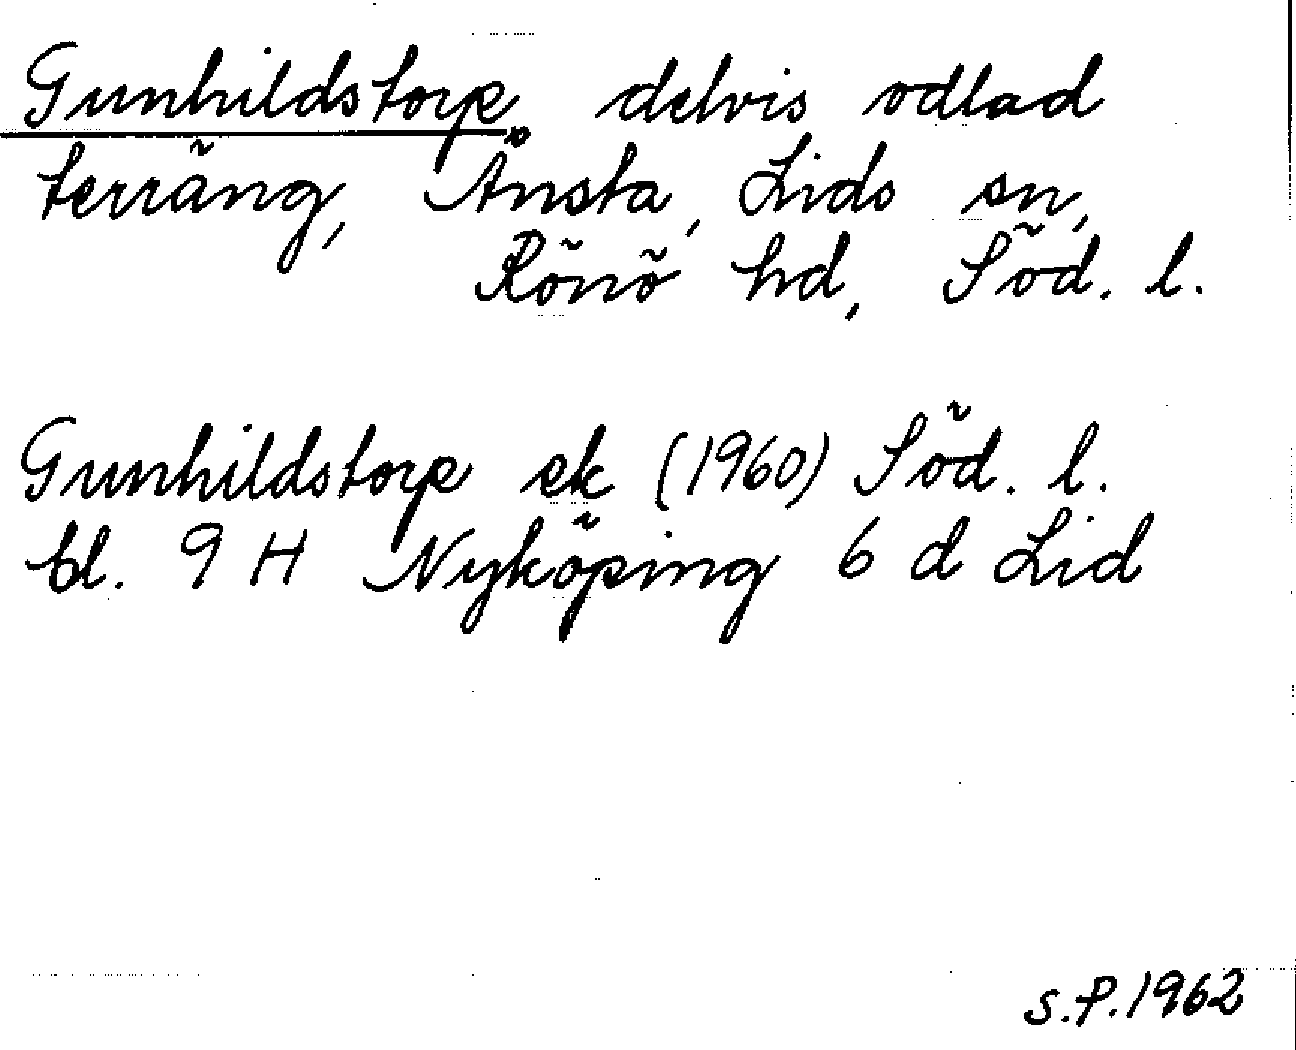 Gunhildstorp, delvis odlad
terräng, Ånsta, Lids sn,
Rönö hd, Söd. l.
Gunhildstorp ek (1960) Söd. l.
bl. 9 H Nyköping 6 d Lid
S.P. 1962